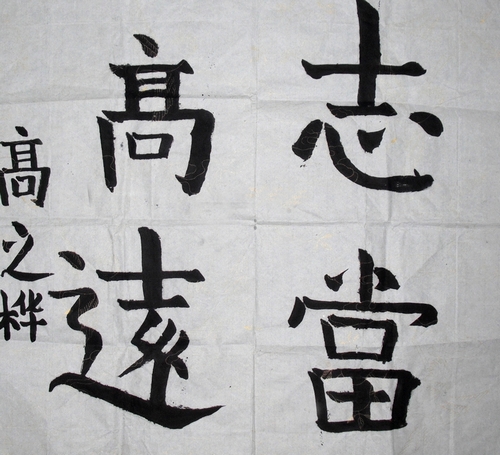 志當
高遠
高之桦